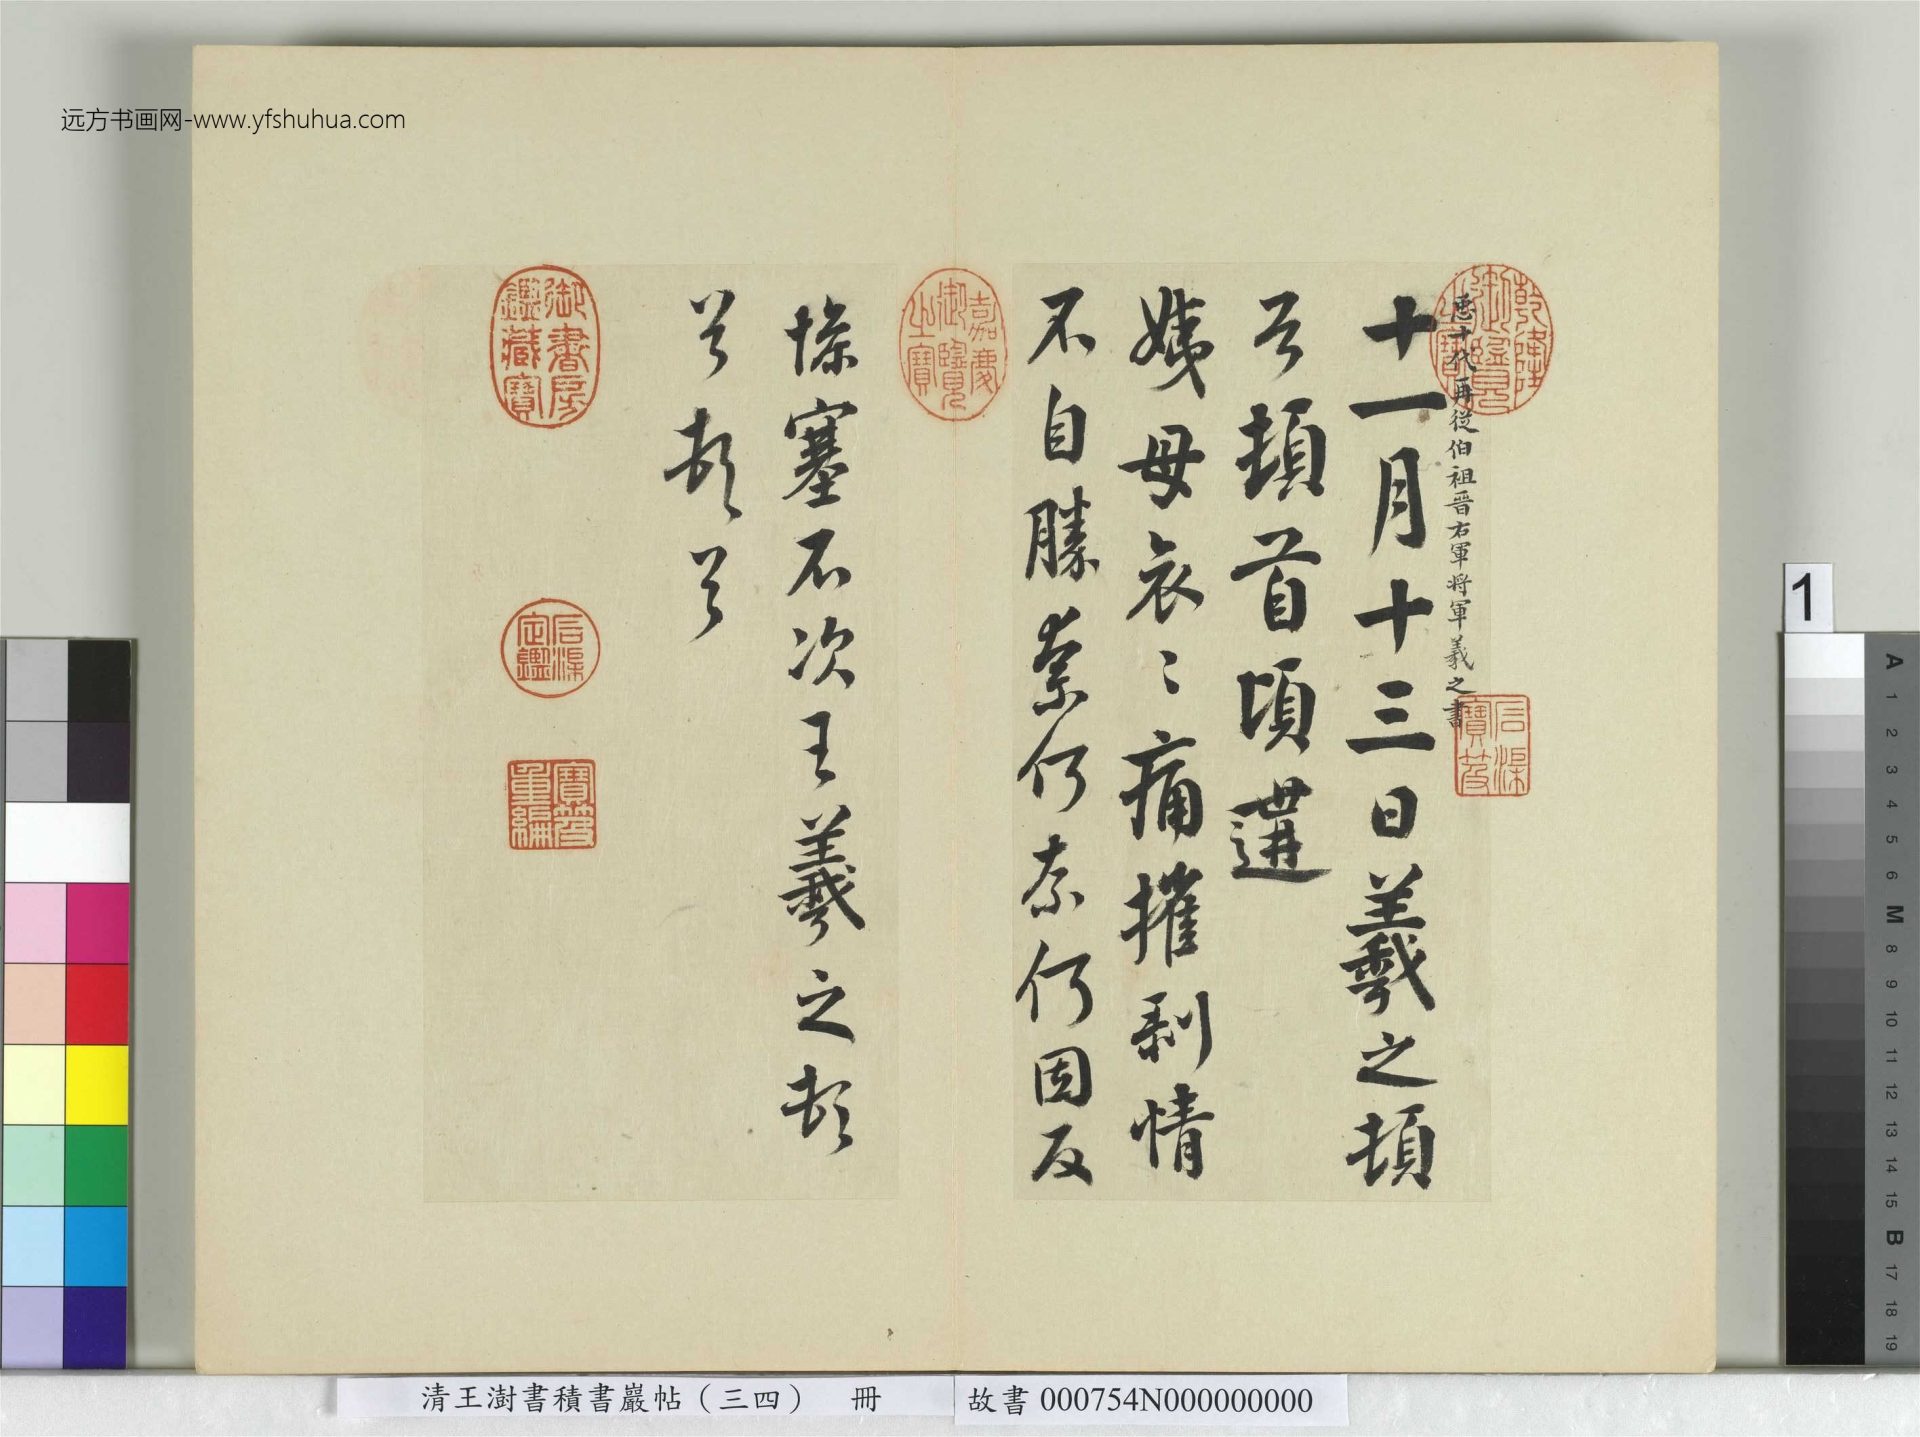 远方书画网-www.yfshuhua.com
乾隆御覽之寶
𢘑十代再從伯祖晉右軍將軍羲之書
石渠寶笈
十一月十三日羲之頓
首頓首頃遘
姨母哀〻痛摧剥情
不自勝奈何奈何因反
嘉慶御覽之寶
慘塞不次王羲之頓
首頓首
御書房鑑藏寶
石渠定鑑
寶笈重編
清王澍書積書巖帖（三四） 冊
故書 000754N000000000
1
A
1
2
3
4
5
6
M
8
9
10
11
12
13
14
15
B
17
18
19